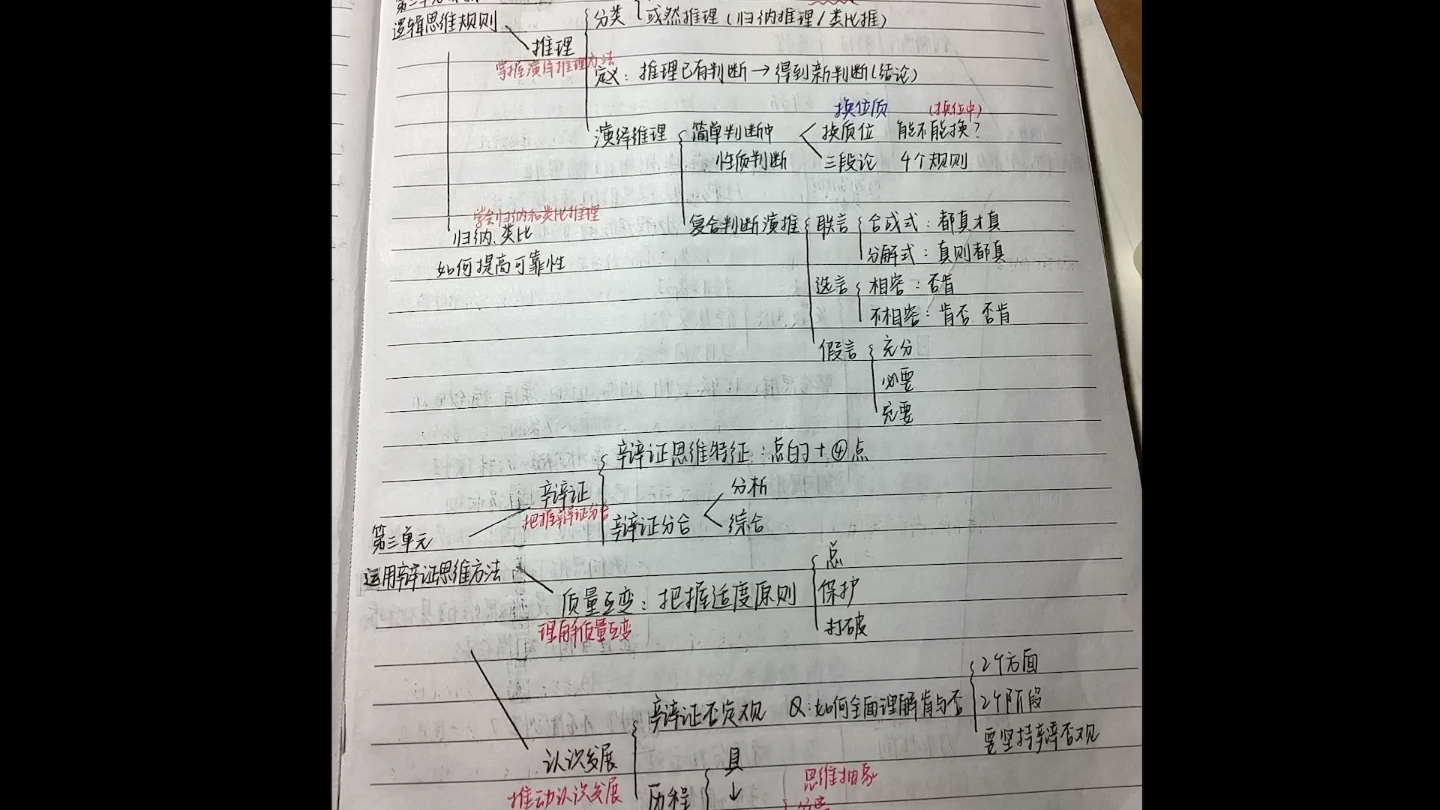 逻辑思维规则
分类 或然推理(归纳推理/类比推)
推理
掌握演绎推理方法
定义:推理已有判断→得到新判断(结论)
换位质 (换位中)
演绎推理 简单判断中 换质位 能不能换?
性质判断 三段论 4个规则
学会归纳和类比推理
归纳、类比
如何提高可靠性
复合判断演推 联言 合成式:都真才真
分解式:真则都真
选言 相容:否肯
不相容:肯否 否肯
假言 充分
必要
充要
辩证思维特征:点的+④点
辩证
把握辩证分合
分析
辩证分合
综合
第三单元
运用辩证思维方法
质量互变:把握适度原则
理解质量互变
点
保护
打破
辩证否定观 Q:如何全面理解肯与否
2个方面
2个阶段
要坚持辩证否观
认识发展
推动认识发展
历程 具
↓
思维抽象